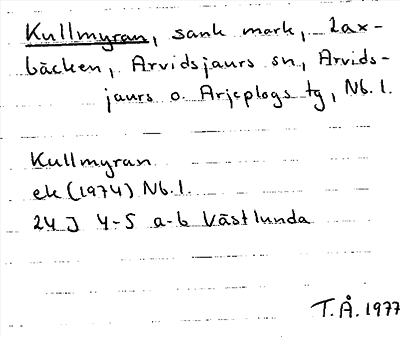 Kullmyran, sank mark, Lax-
bäcken, Arvidsjaurs sn, Arvids-
jaurs o. Arjeplogs tg, Nb. l.
Kullmyran
ek (1974) Nb. l.
24 J 4-5 a-b Västlunda
T. Å. 1977